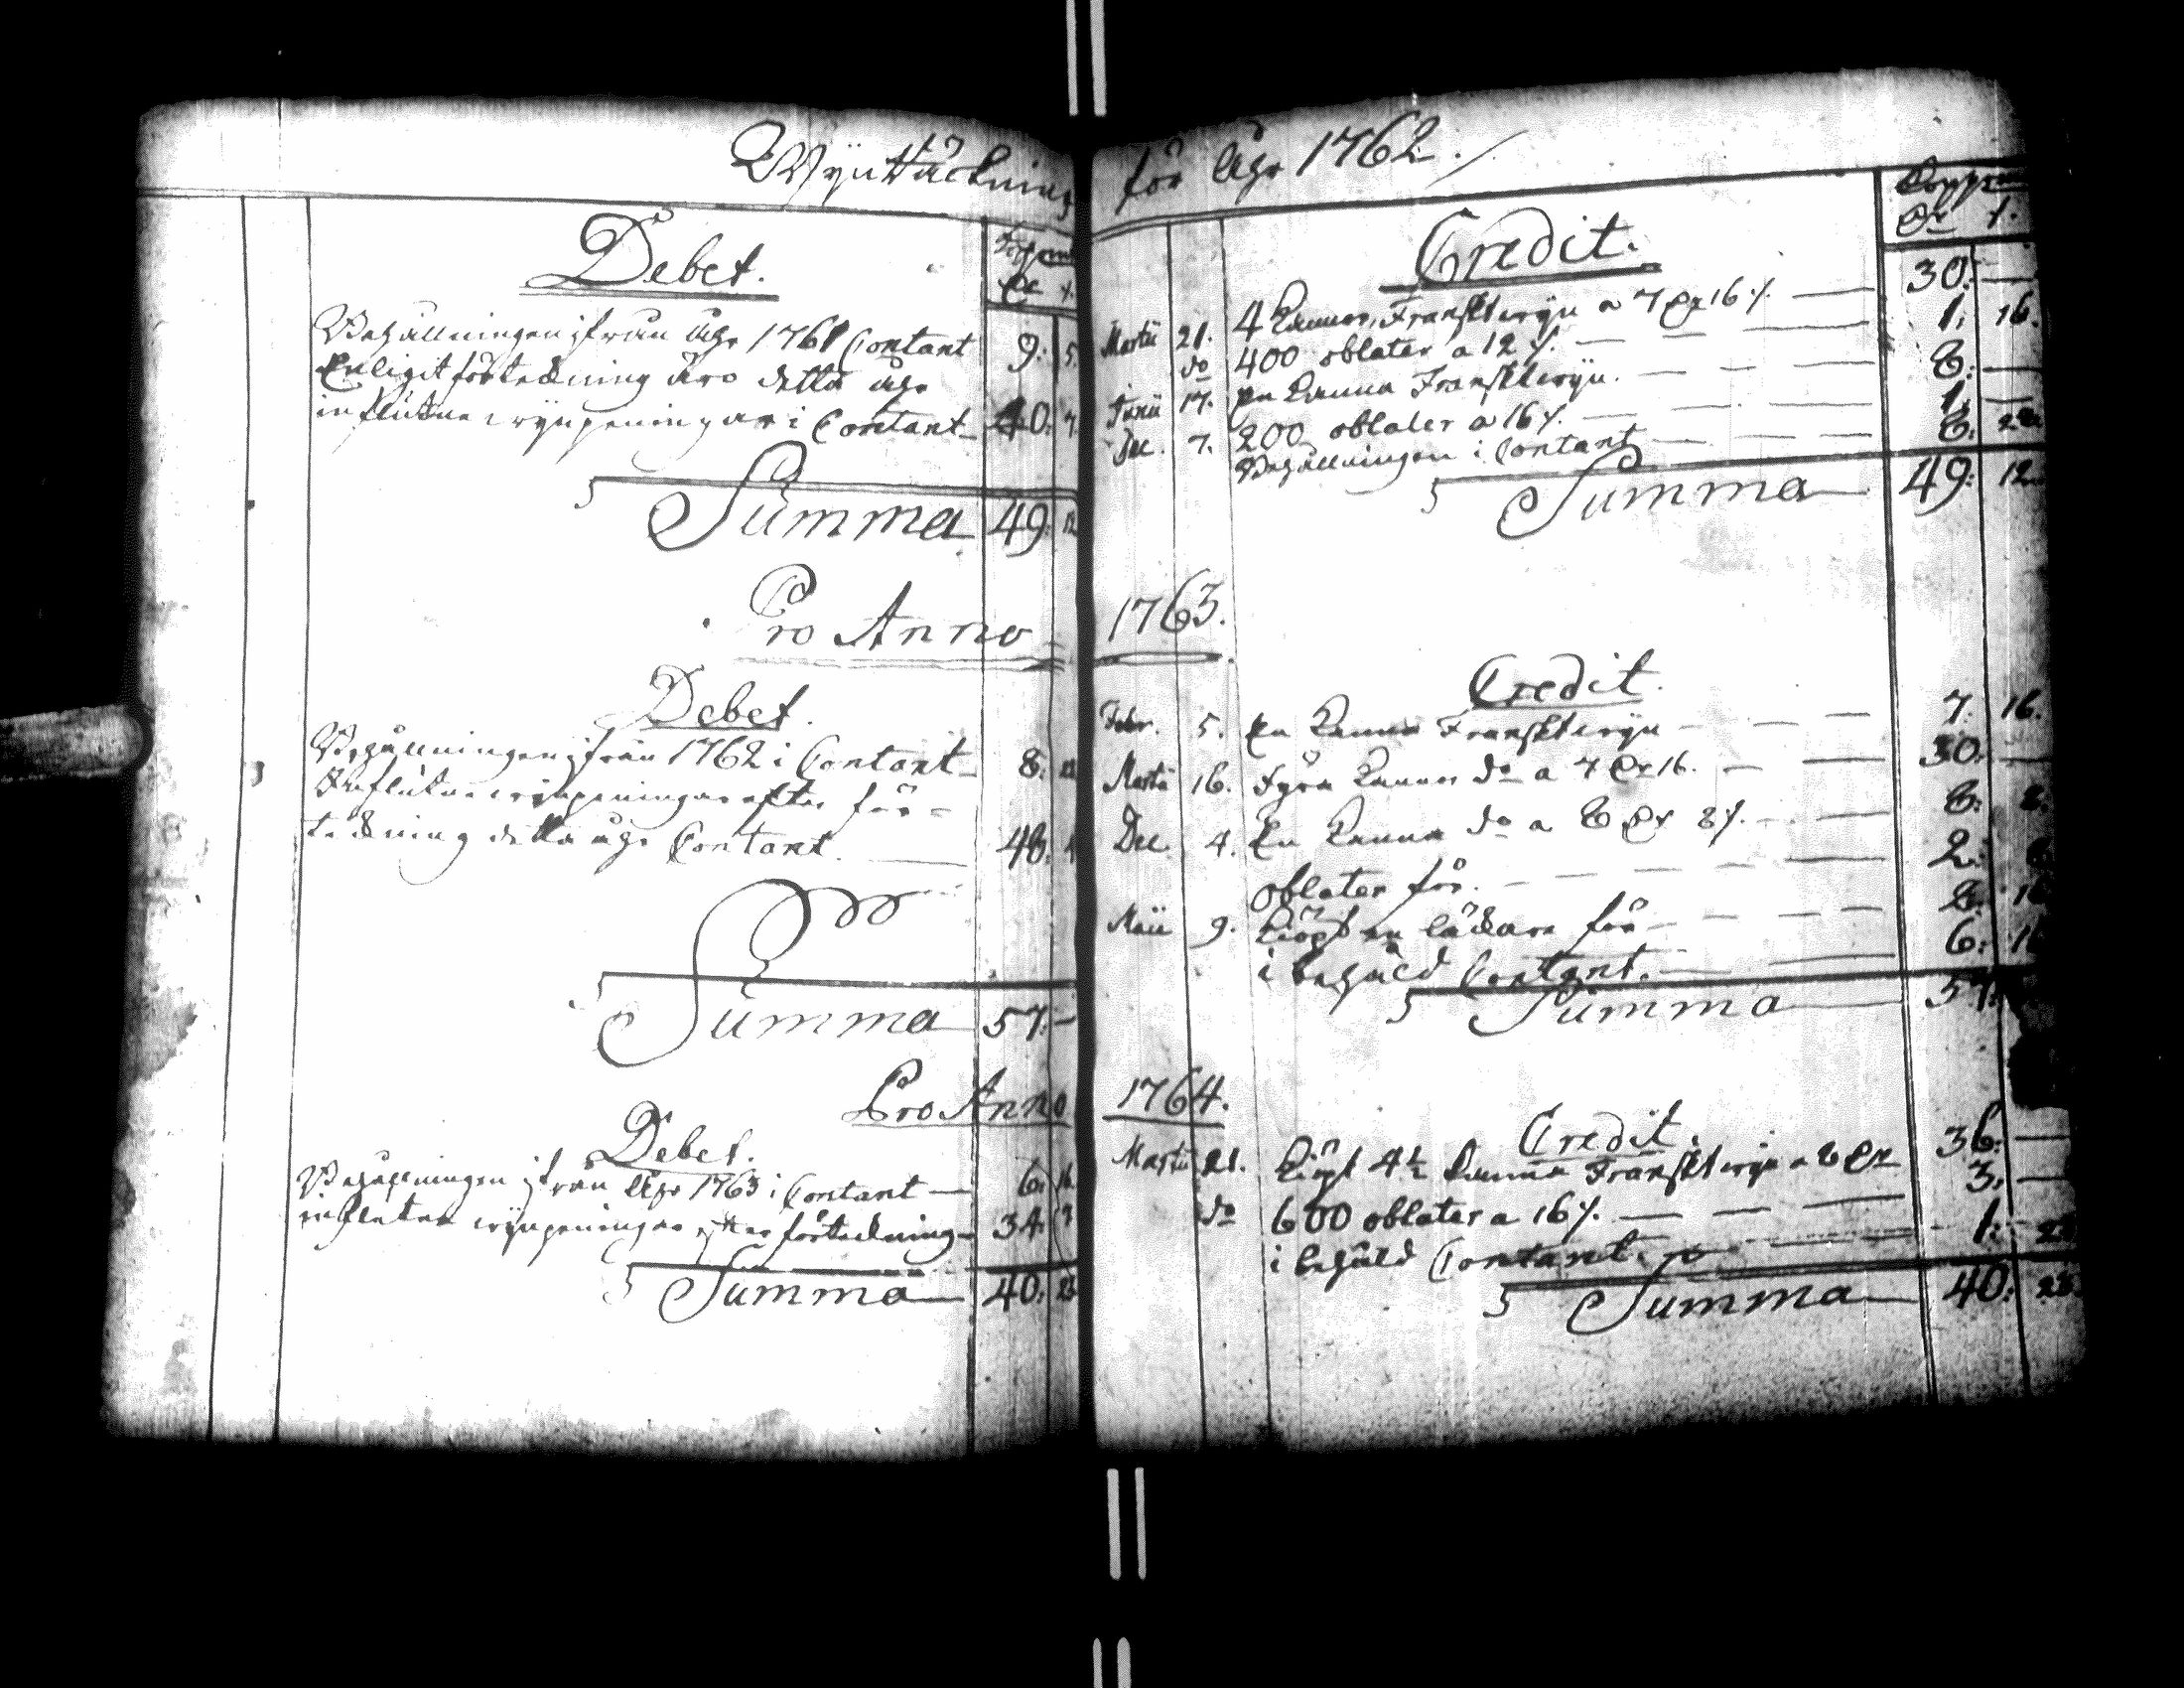 Wynräckning för åhr 1762.
Debet.
Kopparm
Behållningen ifrån åhr 1761 Contant 9: 5
Enligit förteckning äro detta åhr
influtne wynpeningar i Contant 40: 7
Summa 49: 12
Pro Anno 1763.
Debet.
Behållningen ifrån 1762 i Contant 8:
Influtne wynpeningar efter för=
teckning detta åhr Contant. 48:
Summa 57: —
Pro Anno 1764.
Debet.
Behållningen ifrån åhr 1763 i Contant — 6: 16
influtne wynpeningar efter förteckning 34:
Summa 40: 23
Credit.
Kopparm
Martii 21. 4 Kannor Franskt wyn a 7 Dr 16 /. — 30: —
do 400 oblater a 12 /. — 1: 16.
Junii 17. En Kanna Franskt wyn. — 8: —
Dec. 7. 200 oblater a 16 /. — 1: —
Behållningen i Contant — 8: 28
Summa 49: 12
Credit.
Febr. 5. En Kanna Franskt wyn — 7: 16.
Martii 16. Fyra Kannor do a 7 Dr 16. — 30: —
Dec. 4. En Kanna do a 8 Dr 8 /. — 8: 8.
oblater för. — 2:
Maii 9. Kiöpt en lädare för — 2: 16
i behåld Contant. — 6: 16
Summa 57:
Credit.
Martii 21. Kiöpt 4 1/2 Kanna Franskt wyn a 8 Dr 36: —
do 600 oblater a 16 /. — 3: —
i behåld Contant. 1: 23
Summa 40: 23